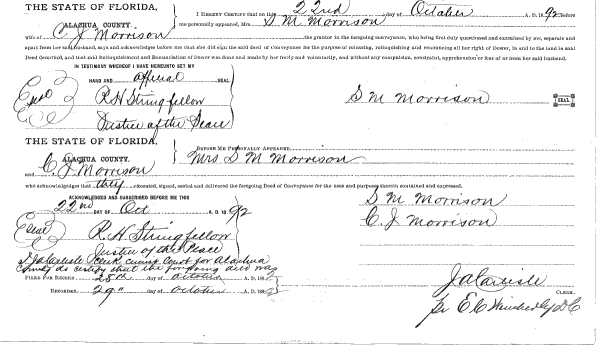 THE STATE OF FLORIDA,
ALACHUA COUNTY.
I HEREBY CERTIFY that on this 22nd day of October A. D. 1892 before
me personally appeared, Mrs. S M Morrison
wife of C. J Morrison the grantor in the foregoing conveyance, who being first duly questioned and examined by me, separate and
apart from her said husband, says and acknowledges before me that she did sign the said deed of Conveyance for the purpose of releasing, relinquishing and renouncing all her right of Dower, in and to the land in said
Deed described, and that said Relinquishment and Renunciation was done and made by her freely and voluntarily, and without any compulsion, constraint, apprehension or fear of or from her said husband.
IN TESTIMONY WHEREOF I HAVE HEREUNTO SET MY
HAND AND official SEAL
Seal R H Stringfellow
Justice of the Peace
S M Morrison SEAL
THE STATE OF FLORIDA,
ALACHUA COUNTY.
BEFORE ME PERSONALLY APPEARED
Mrs S M Morrison
and C. J Morrison
who acknowledges that they executed, signed, sealed and delivered the foregoing Deed of Conveyance for the uses and purposes therein contained and expressed.
ACKNOWLEDGED AND SUBSCRIBED BEFORE ME THIS
22nd DAY OF Oct A. D. 1892
S M Morrison
C. J Morrison
Seal R. H Stringfellow
Justice of the Peace
I J A Carlisle Clerk Circuit Court for Alachua
County do certify that the foregoing deed was
FILED FOR RECORD 28th day of October A. D. 1892
RECORDED 29" day of October A. D. 1892
J A Carlisle CLERK.
pr E C D C